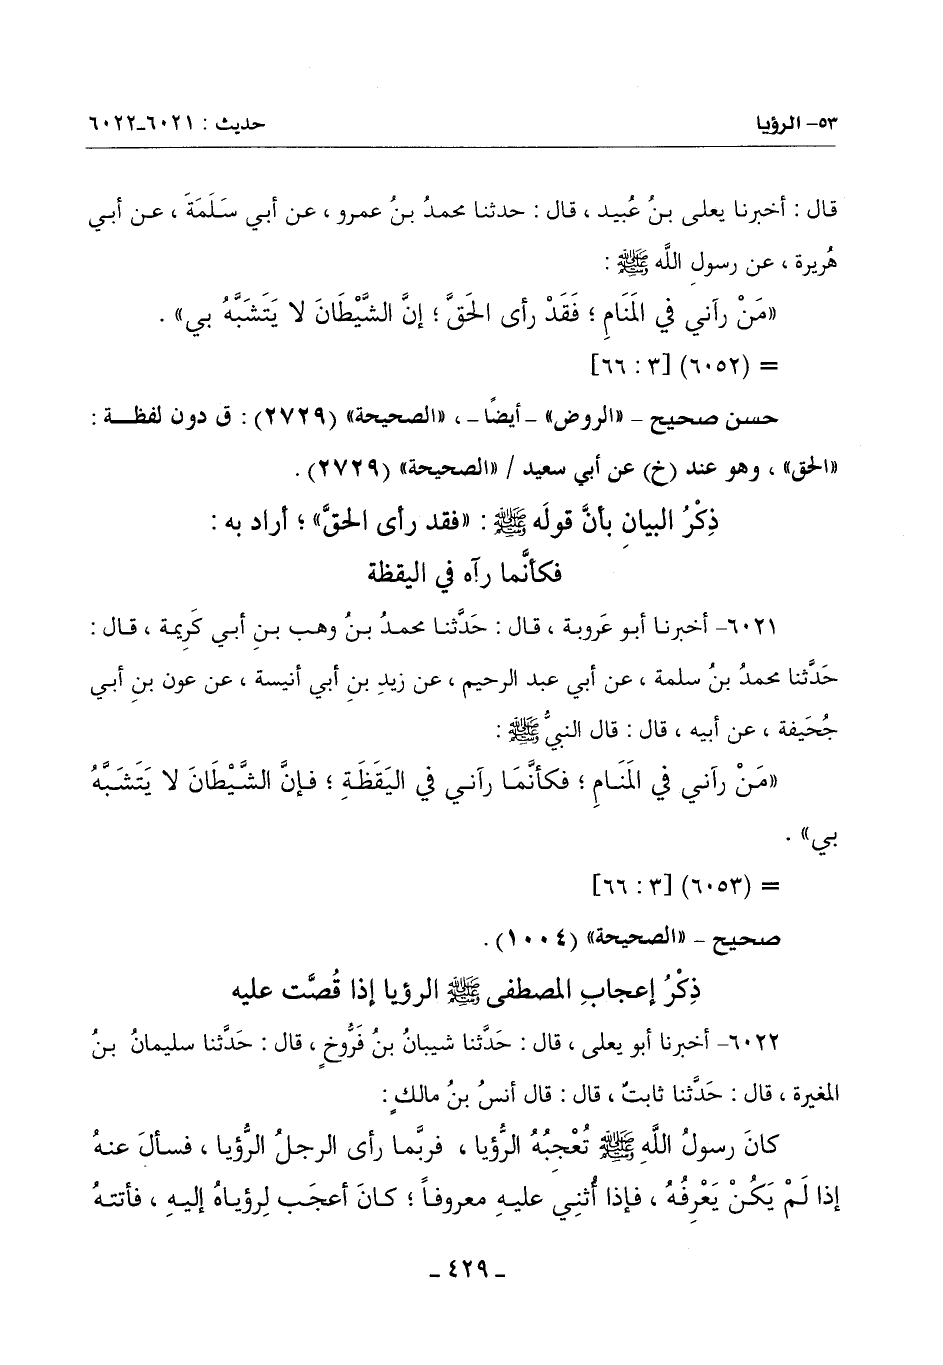 ٥٣- الرؤيا حديث : ٦٠٢١-٦٠٢٢
قال : أخبرنا يعلى بنُ عُبيد ، قال : حدثنا محمدُ بنُ عمرو ، عن أبي سَلَمَةَ ، عن أبي
هُريرة ، عن رسولِ اللَّه ﷺ :
«مَنْ رآني في المَنَامِ ؛ فَقَدْ رأى الحَقَّ ؛ إنَّ الشَّيْطَانَ لا يَتَشَبَّهُ بي» .
= (٦٠٥٢) [٣ : ٦٦]
حسن صحيح – «الروض» -أيضًا- ، «الصحيحة» (٢٧٢٩) : ق دون لفظة :
«الحق» ، وهو عند (خ) عن أبي سعيد / «الصحيحة» (٢٧٢٩) .
ذِكْرُ البيانِ بأنَّ قولَه ﷺ : «فقد رأى الحقَّ» ؛ أراد به :
فكأنَّما رآه في اليقظة
٦٠٢١- أخبرنا أبو عَروبة ، قال : حَدَّثنا محمدُ بنُ وهب بنِ أبي كَرِيمة ، قال :
حَدَّثنا محمدُ بنُ سلمة ، عن أبي عبد الرحيم ، عن زيدِ بنِ أبي أنيسة ، عن عون بنِ أبي
جُحَيفة ، عن أبيه ، قال : قال النبيُّ ﷺ :
«مَنْ رآني في المَنَامِ ؛ فكأنَّمَا رآني في اليَقَظَةِ ؛ فإنَّ الشَّيْطَانَ لا يَتَشَبَّهُ
بي» .
= (٦٠٥٣) [٣ : ٦٦]
صحيح – «الصحيحة» (١٠٠٤) .
ذِكْرُ إعجابِ المصطفى ﷺ الرؤيا إذا قُصَّت عليه
٦٠٢٢- أخبرنا أبو يعلى ، قال : حَدَّثنا شيبانُ بنُ فَرُّوخٍ ، قال : حَدَّثنا سليمانُ بنُ
المغيرة ، قال : حَدَّثنا ثابتٌ ، قال : قال أنسُ بنُ مالكٍ :
كانَ رسولُ اللَّهِ ﷺ تُعْجِبُهُ الرُّؤيا ، فربَّما رأى الرجلُ الرُّؤيا ، فسألَ عنهُ
إذا لَمْ يَكُنْ يَعْرِفُهُ ، فإذا أُثنِي عليهِ معروفاً ؛ كانَ أعجَب لِرؤياهُ إليهِ ، فأتتهُ
- ٤٢٩ -